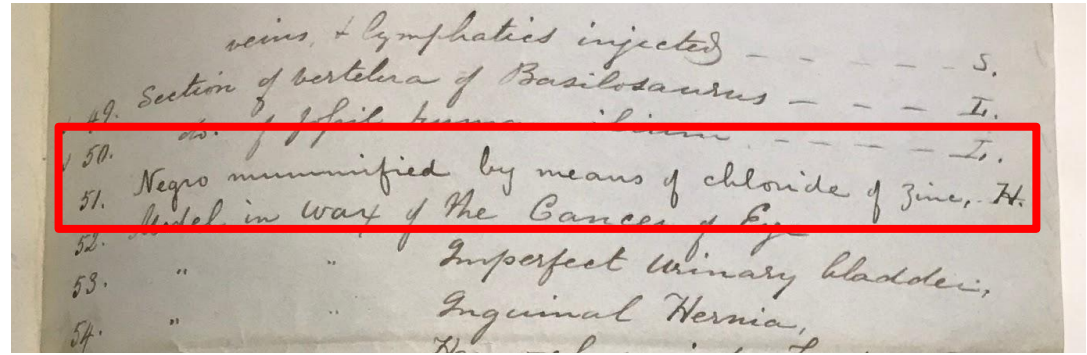 veins, & lymphatics injected - - - - - S.
49. Section of vertebra of Basilosaurus - - - I.
50. do. of fossil human ilium - - - - I.
51. Negro mummified by means of chloride of zinc, H.
52. Model in wax of the Cancer of Eye
53. " " Imperfect urinary bladder,
54. " " Inguinal Hernia,